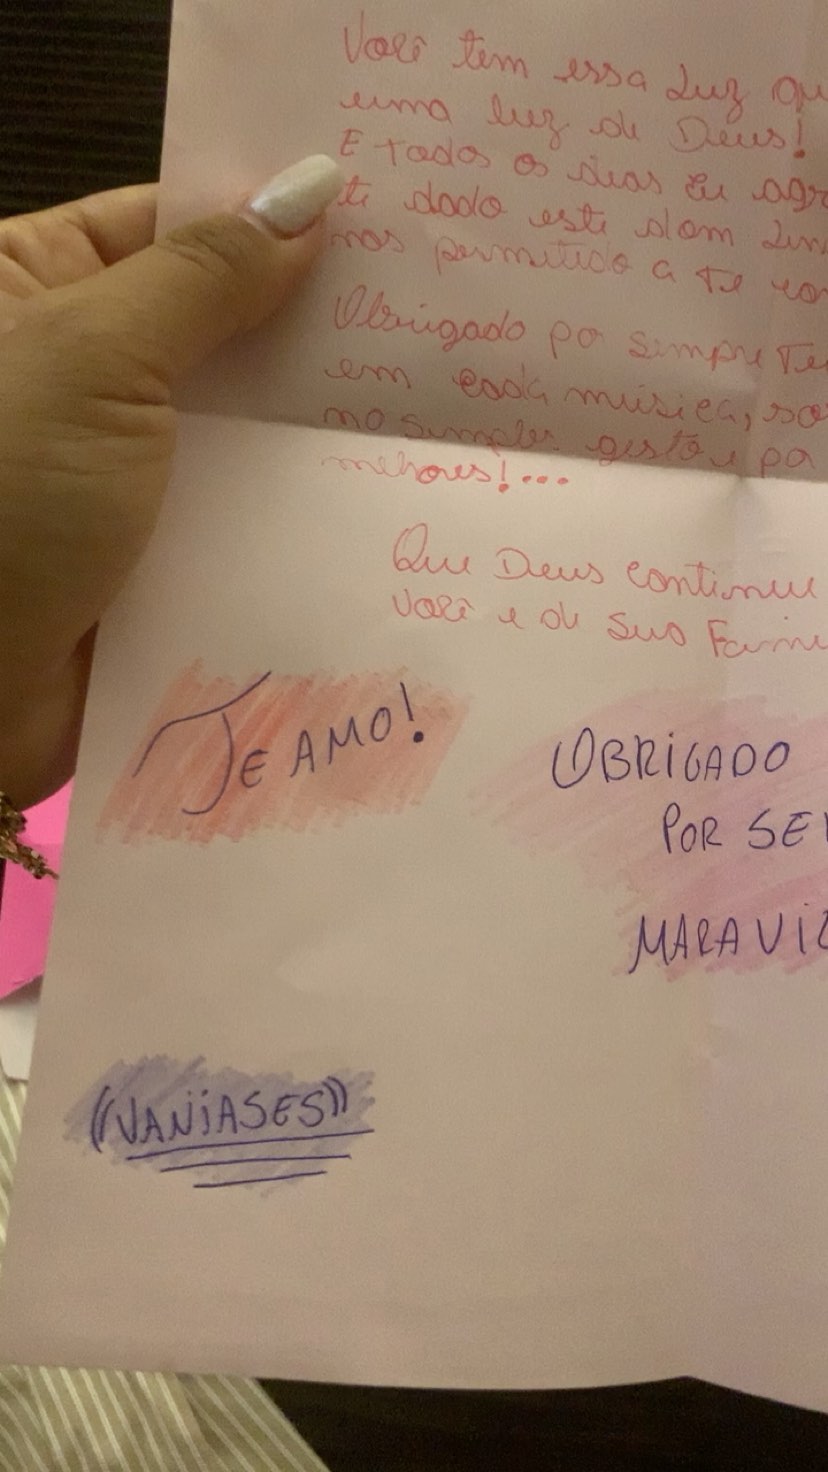 Você tem essa Luz qu
uma luz de Deus!
E todos os dias Eu agr
te dado este dom Lin
nos permitido a Te co
Obrigado por sempre Te
em cada música, so
no simples gesto e po
melhores!...
Que Deus continue
Você e de Sua Fami
TE AMO!
OBRIGADO
POR SE
MARAVIL
((VANIASES))